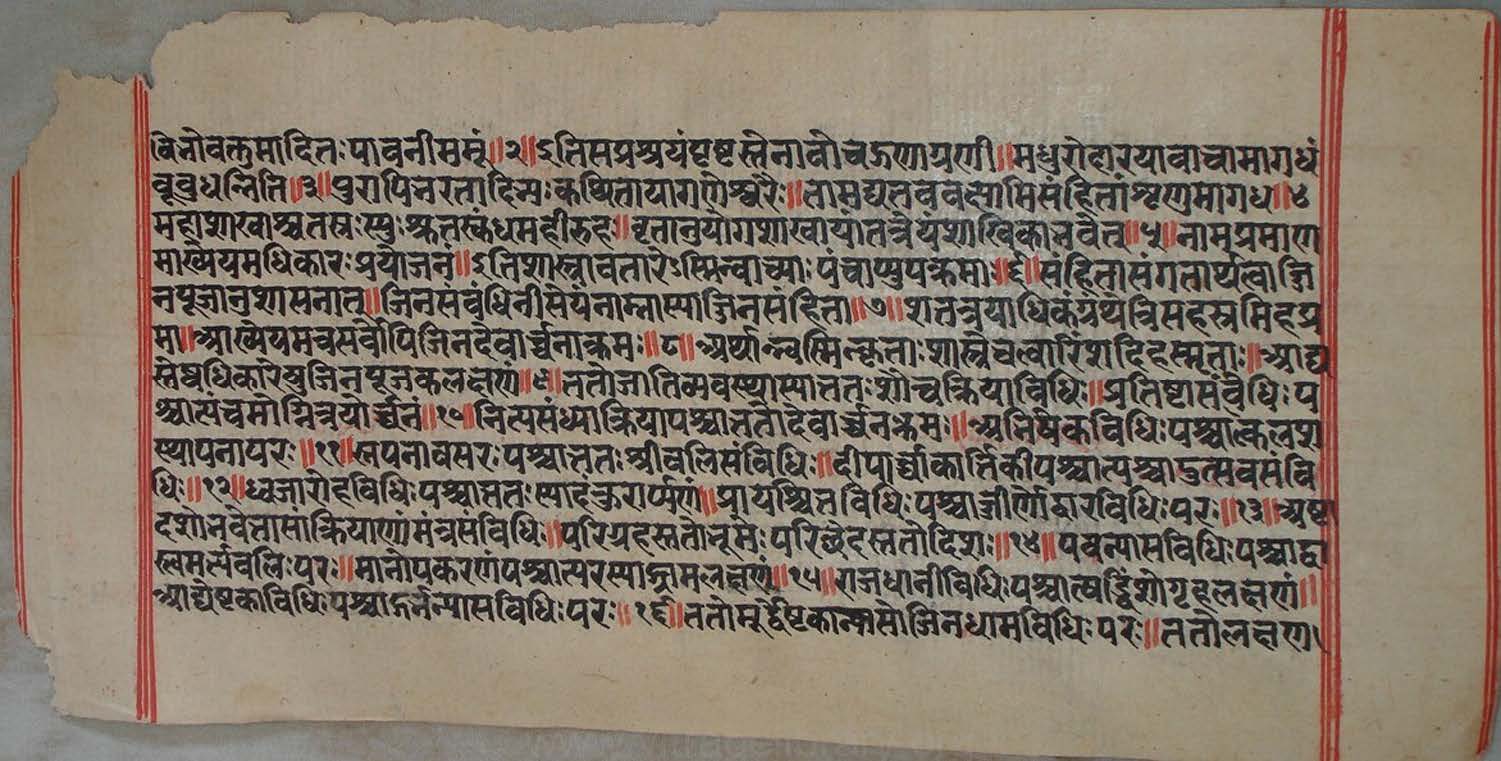 विनोवक्तुमादितःपावनीममूं॥२॥इतिसप्रश्रयंपृष्टस्तेनावोचऊणाग्रणी॥मधुरोदारयावाचामागधं
वूवुधन्निति॥३॥पुरापिजरतादिभ्यःकथितोयागणेश्वरैः॥तामद्यतववक्ष्यामिसंहितांशृणुमागध॥४
महाशाखाश्चतस्रःस्युःश्रुतस्कंधमहीरुहः॥वृतानुयोगशाखायांतत्रेयंशाखिकानवेत्॥५॥नामप्रमाण
माख्येयमधिकारःप्रयोजनं॥इतिशास्त्रावतारेऽस्मिन्वाच्याःपंचाप्युपक्रमाः॥६॥संहितासंगतार्थत्वाज्जि
नपूजानुशासनात्॥जिनसंवंधिनीसेयंनाम्नास्याज्जिनसंहिता॥७॥शतत्रयाधिकंग्रंथत्रिसहस्रमिहप्र
मा॥आख्येयमत्रसर्वोपिजिनदेवार्च्चनाक्रमः॥८॥अर्थान्त्वस्मिन्कृताःशास्त्रेचत्वारिंशदिहस्मृताः॥आद्य
स्तेष्वधिकारेषुजिनपूजकलक्षणं॥९॥ततोजातिव्यवस्थास्यात्ततःशौचक्रियाविधिः॥प्रतिष्टासंवेधिःप
श्चात्पंचमोग्नित्रयोर्च्चनं॥१०॥नित्यसंध्याक्रियापश्चात्ततोदेवार्च्चनक्रमः॥अनिषेकविधिःपश्चात्कलश
स्थापनापरः॥११॥स्नपनावसरःपश्चात्ततःश्रीवलिसंविधिः॥दीपार्च्चाकार्त्तिकीपश्चात्पश्चादुत्सवसंवि
धिः॥१२॥ध्वजारोहविधिःपश्चात्ततःस्यादंकुरार्प्पणं॥प्रायश्चित्तविधिःपश्चाज्जीर्णोद्धारविधिःपरः॥१३॥अष्टा
दशोनवेत्तासांक्रियाणांमंत्रसंविधिः॥परिग्रहस्ततोनूमेःपरिछेदस्ततोदिशः॥१४॥पदन्यासविधिःपश्चाद्वा
स्तमर्त्यवलिःपरः॥मानोपकरणंपश्चात्परस्याद्ग्रामलक्षणं॥१५॥राजधानीविधिःपश्चात्षड्विंशोगृहलक्षणं॥
आद्येष्टकाविधिःपश्चाऊर्नन्यासविधिःपरः॥१६॥ततोमूर्द्धेष्टकान्यासोजिनधामविधिःपरः॥ततोलक्षण